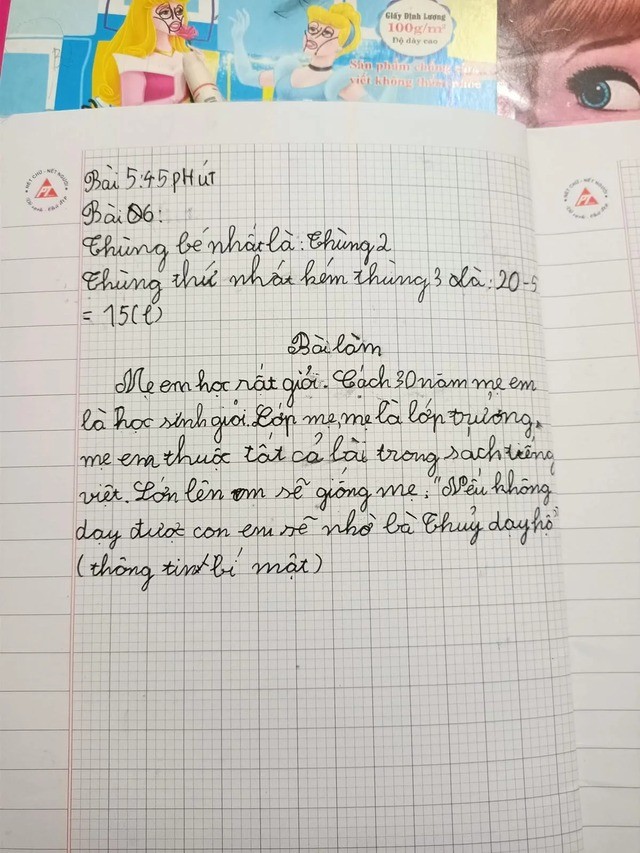 Giấy Định Lượng
100g/m²
Độ dày cao
Sản phẩm chống
viết không thấm nhòe
NÉT CHỮ - NẾT NGƯỜI
Bài 5:45 pHút
Bài 06:
Thùng bé nhất là: Thùng 2
Thùng thứ nhất kém thùng 3 là: 20-5
= 15(l)
Bài làm
Mẹ em học rất giỏi. Cách 30 năm mẹ em
là học sinh giỏi. Lớp mẹ, mẹ là lớp trưởng,
mẹ em thuộc tất cả bài trong sach tiếng
việt. Lớn lên em sẽ giống mẹ: "Nếu không
dạy được con em sẽ nhờ bà Thuỷ dạy hộ"
(thông tin bí mật)